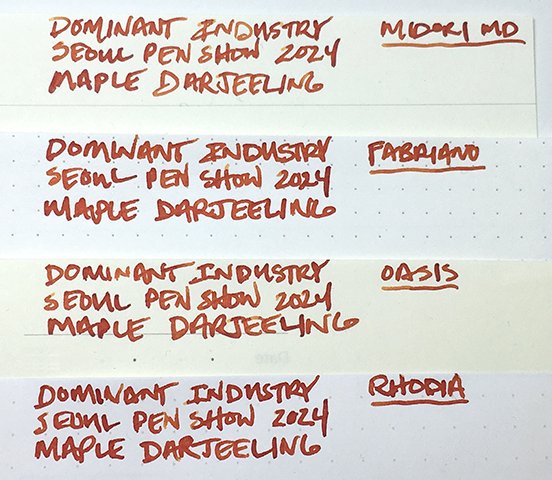 DOMINANT INDUSTRY MIDORI MD
SEOUL PEN SHOW 2024
MAPLE DARJEELING
DOMINANT INDUSTRY FABRIANO
SEOUL PEN SHOW 2024
MAPLE DARJEELING
DOMINANT INDUSTRY OASIS
SEOUL PEN SHOW 2024
MAPLE DARJEELING
Date
DOMINANT INDUSTRY RHODIA
SEOUL PEN SHOW 2024
MAPLE DARJEELING